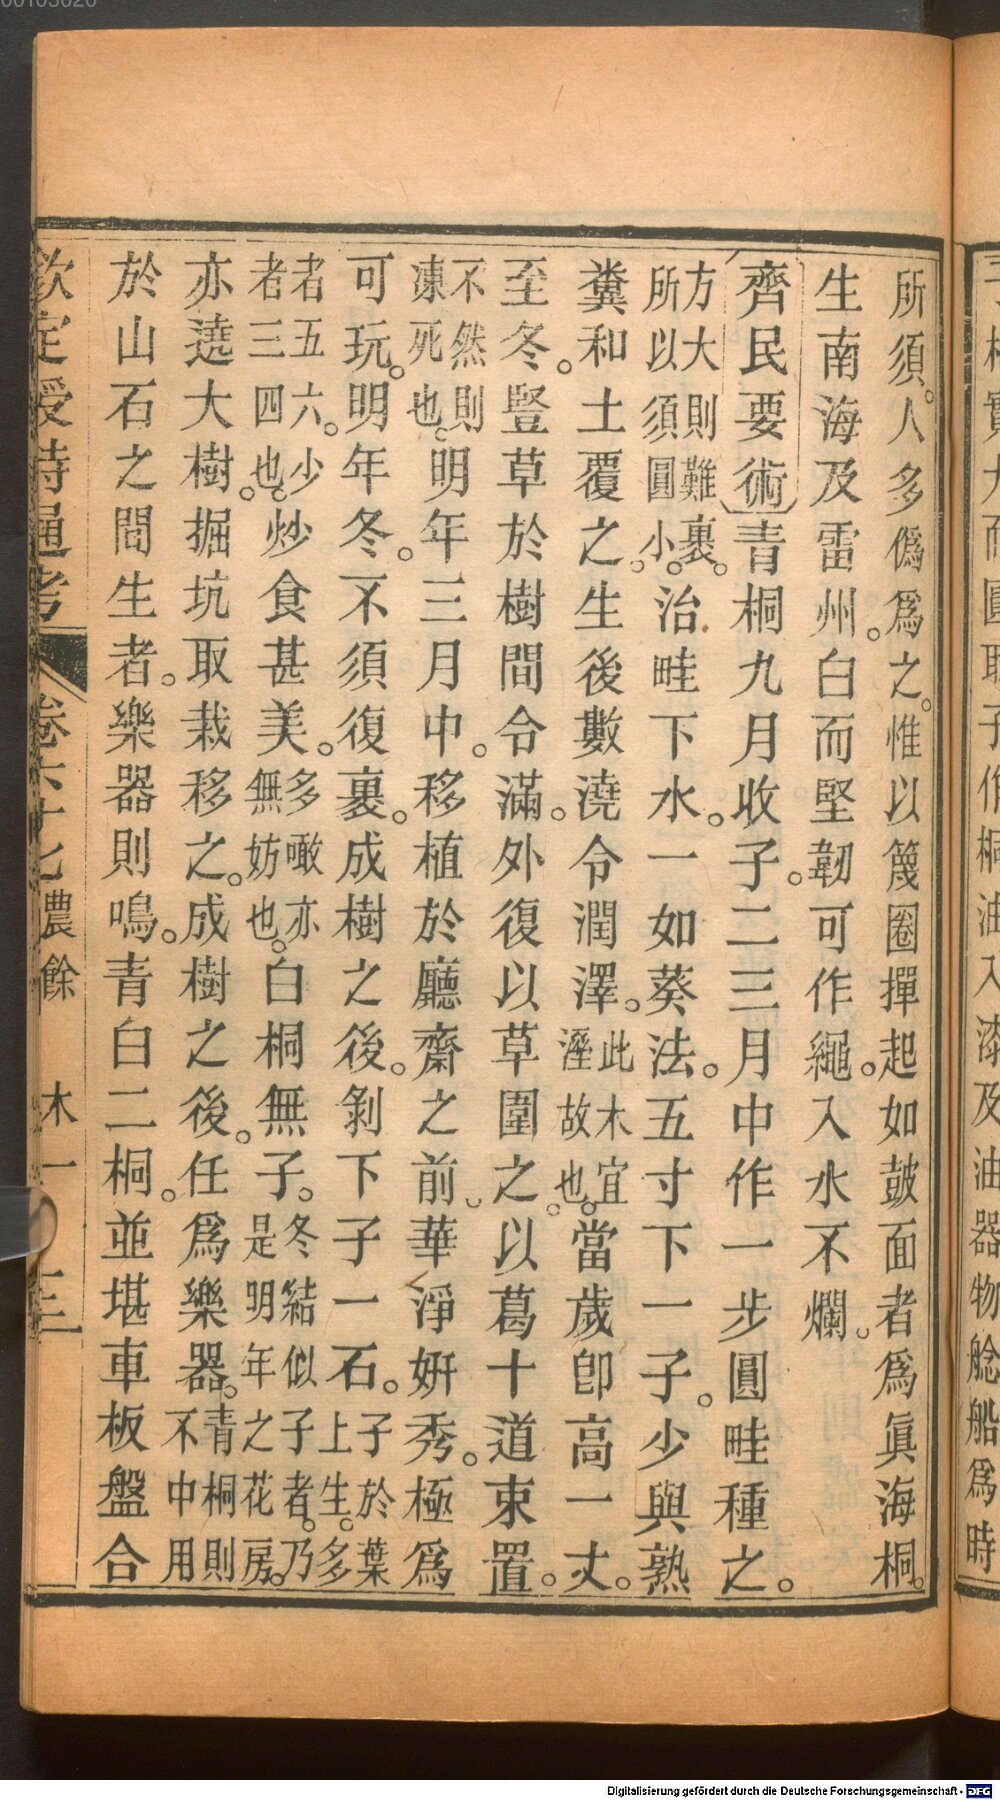 所須。人多僞爲之。惟以篾圈撣起如皷面者爲眞海桐。
生南海及雷州。白而堅韌可作繩。入水不爛。
齊民要術青桐九月收子。二三月中作一步圓畦種之。
方大則難裹。
所以須圓小。
治畦下水。一如葵法。五寸下一子。少與熟
糞和土覆之生後數澆令潤澤。
此木宜
溼故也。
當歲卽高一丈。
至冬。豎草於樹間令滿。外復以草圍之。以葛十道束置。
不然則
凍死也。
明年三月中。移植於廳齋之前。華淨妍秀。極爲
可玩。明年冬。不須復裹。成樹之後。剝下子一石。
子於葉
上生。多
者五六。少
者三四也。
炒食甚美。
多噉亦
無妨也。
白桐無子。
冬結似子者。乃
是明年之花房。
亦遶大樹。掘坑取栽移之。成樹之後。任爲樂器。
青桐則
不中用
於山石之間生者。樂器則鳴。青白二桐。並堪車板盤合
欽定授時通考 卷六十七農餘 木一 三
子桐實大而圓取子作桐油入漆及油器物舩船爲時
00103020
Digitalisierung gefördert durch die Deutsche Forschungsgemeinschaft - DFG